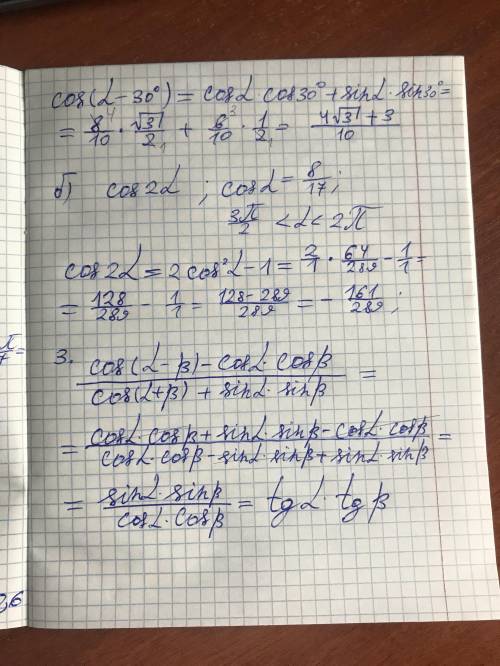 cos(α-30°) = cosα cos30° + sinα · sin30° =
= 8/10 · √3/2 + 6/10 · 1/2 = (4√3 + 3)/10
б) cos2α ; cosα = 8/17;
3π/2 < α < 2π
cos2α = 2cos²α - 1 = 2/1 · 64/289 - 1/1 =
= 128/289 - 1/1 = (128 - 289)/289 = - 161/289;
3. (cos(α-β) - cosα · cosβ)/(cos(α+β) + sinα · sinβ) =
= (cosα · cosβ + sinα · sinβ - cosα · cosβ)/(cosα · cosβ - sinα · sinβ + sinα · sinβ) =
= (sinα · sinβ)/(cosα · cosβ) = tgα · tgβ